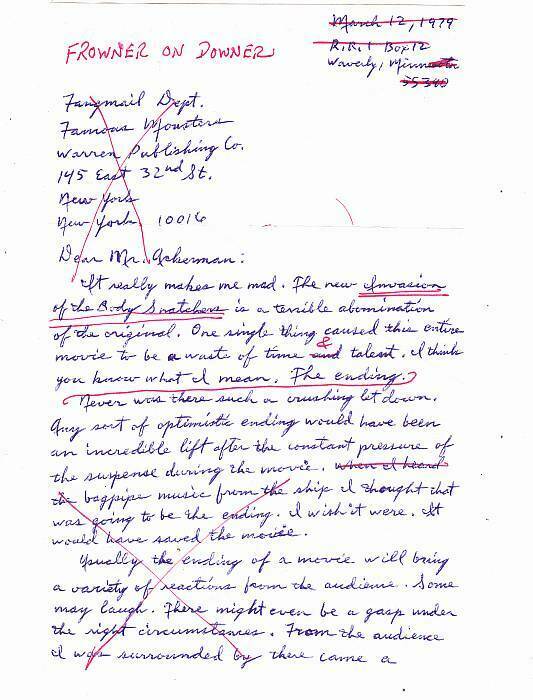 March 12, 1979
FROWNER ON DOWNER
R.R. 1 Box 12
Waverly, Minnesota
55390
Fangmail Dept.
Famous Monsters
Warren Publishing Co.
145 East 32nd St.
New York
New York 10016
Dear Mr. Ackerman:
It really makes me mad. The new Invasion
of the Body Snatchers is a terrible abomination
of the original. One single thing caused this entire
movie to be a waste of time and & talent. I think
you know what I mean. The ending.
Never was there such a crushing let down.
Any sort of optimistic ending would have been
an incredible lift after the constant pressure of
the suspense during the movie. when I heard
the bagpipe music from the ship I thought that
was going to be the ending. I wish it were. It
would have saved the movie.
Usually the ending of a movie will bring
a variety of reactions from the audience. Some
may laugh. There might even be a gasp under
the right circumstances. From the audience
I was surrounded by there came a